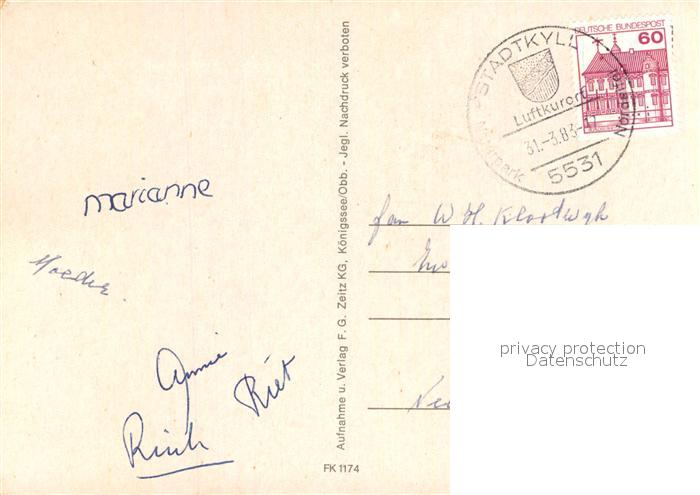 DEUTSCHE BUNDESPOST
60
STADTKYLL
Luftkurort
31.-3.83
5531
Naturpark
Nordeifel
Aufnahme u. Verlag F. G. Zeitz KG, Königssee/Obb. - Jegl. Nachdruck verboten
marianne
Moeder
Annie
Riet
Fam W H. Klootwyk
privacy protection
Datenschutz
FK 1174